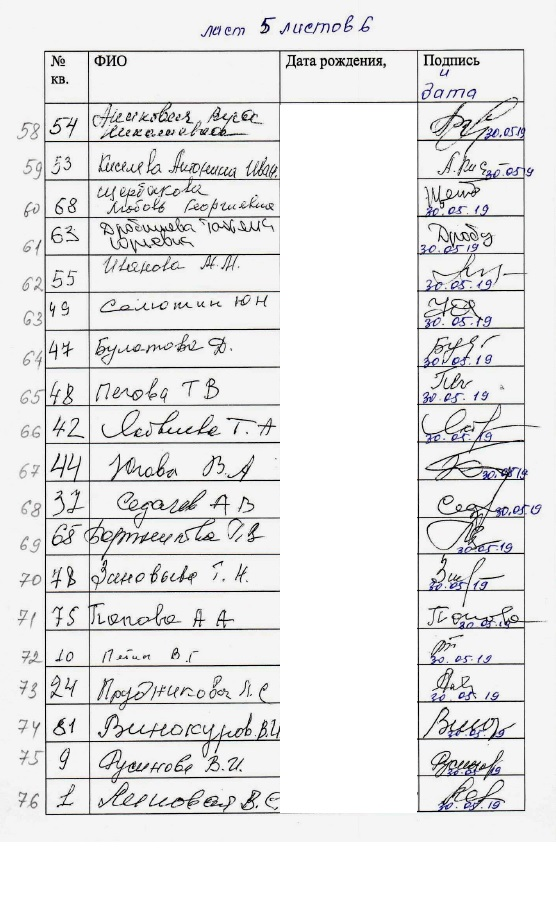 лист 5 листов 6
№ кв. ФИО Дата рождения, Подпись и дата
58 54 Николаевна 30.05.19
59 53 Киселева Антонина Иван. А.Кис 30.05.19
60 68 Щербакова Любовь Георгиевна Щерб 30.05.19
61 63 Юрьевна Дробы 30.05.19
62 55 Иванова А.М. 30.05.19
63 49 Салютин Ю Н 30.05.19
64 47 Булатова Д. 30.05.19
65 48 Пегова Т В 30.05.19
66 42 Т. А 30.05.19
67 44 Югова В. А 30.05.19
68 37 Седачев А В Сед 30.05.19
69 65 30.05.19
70 78 Зиновьева Т. Н. 30.05.19
71 75 Попова А А Попова 30.05.19
72 10 В.Г 30.05.19
73 24 Прудникова Л. С 30.05.19
74 81 Винокуров.В.И Вино 30.05.19
75 9 Русинова В.И. 30.05.19
76 1 В. С 30.05.19